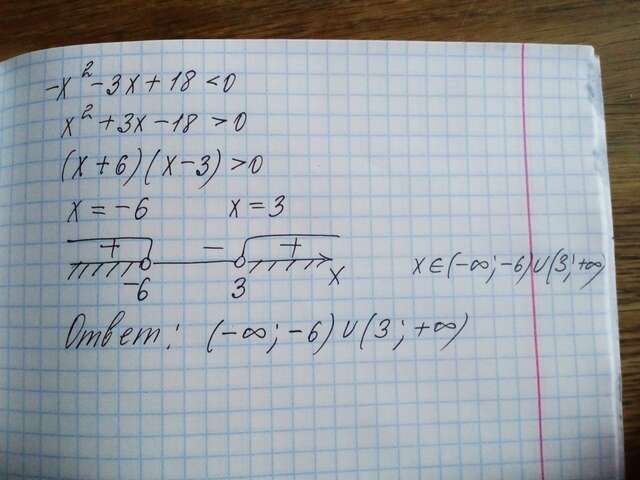 -x² - 3x + 18 < 0
x² + 3x - 18 > 0
(x + 6)(x - 3) > 0
x = -6 x = 3
+ - +
-6 3 x
x ∈ (-∞; -6) ∪ (3; +∞)
Ответ: (-∞; -6) ∪ (3; +∞)